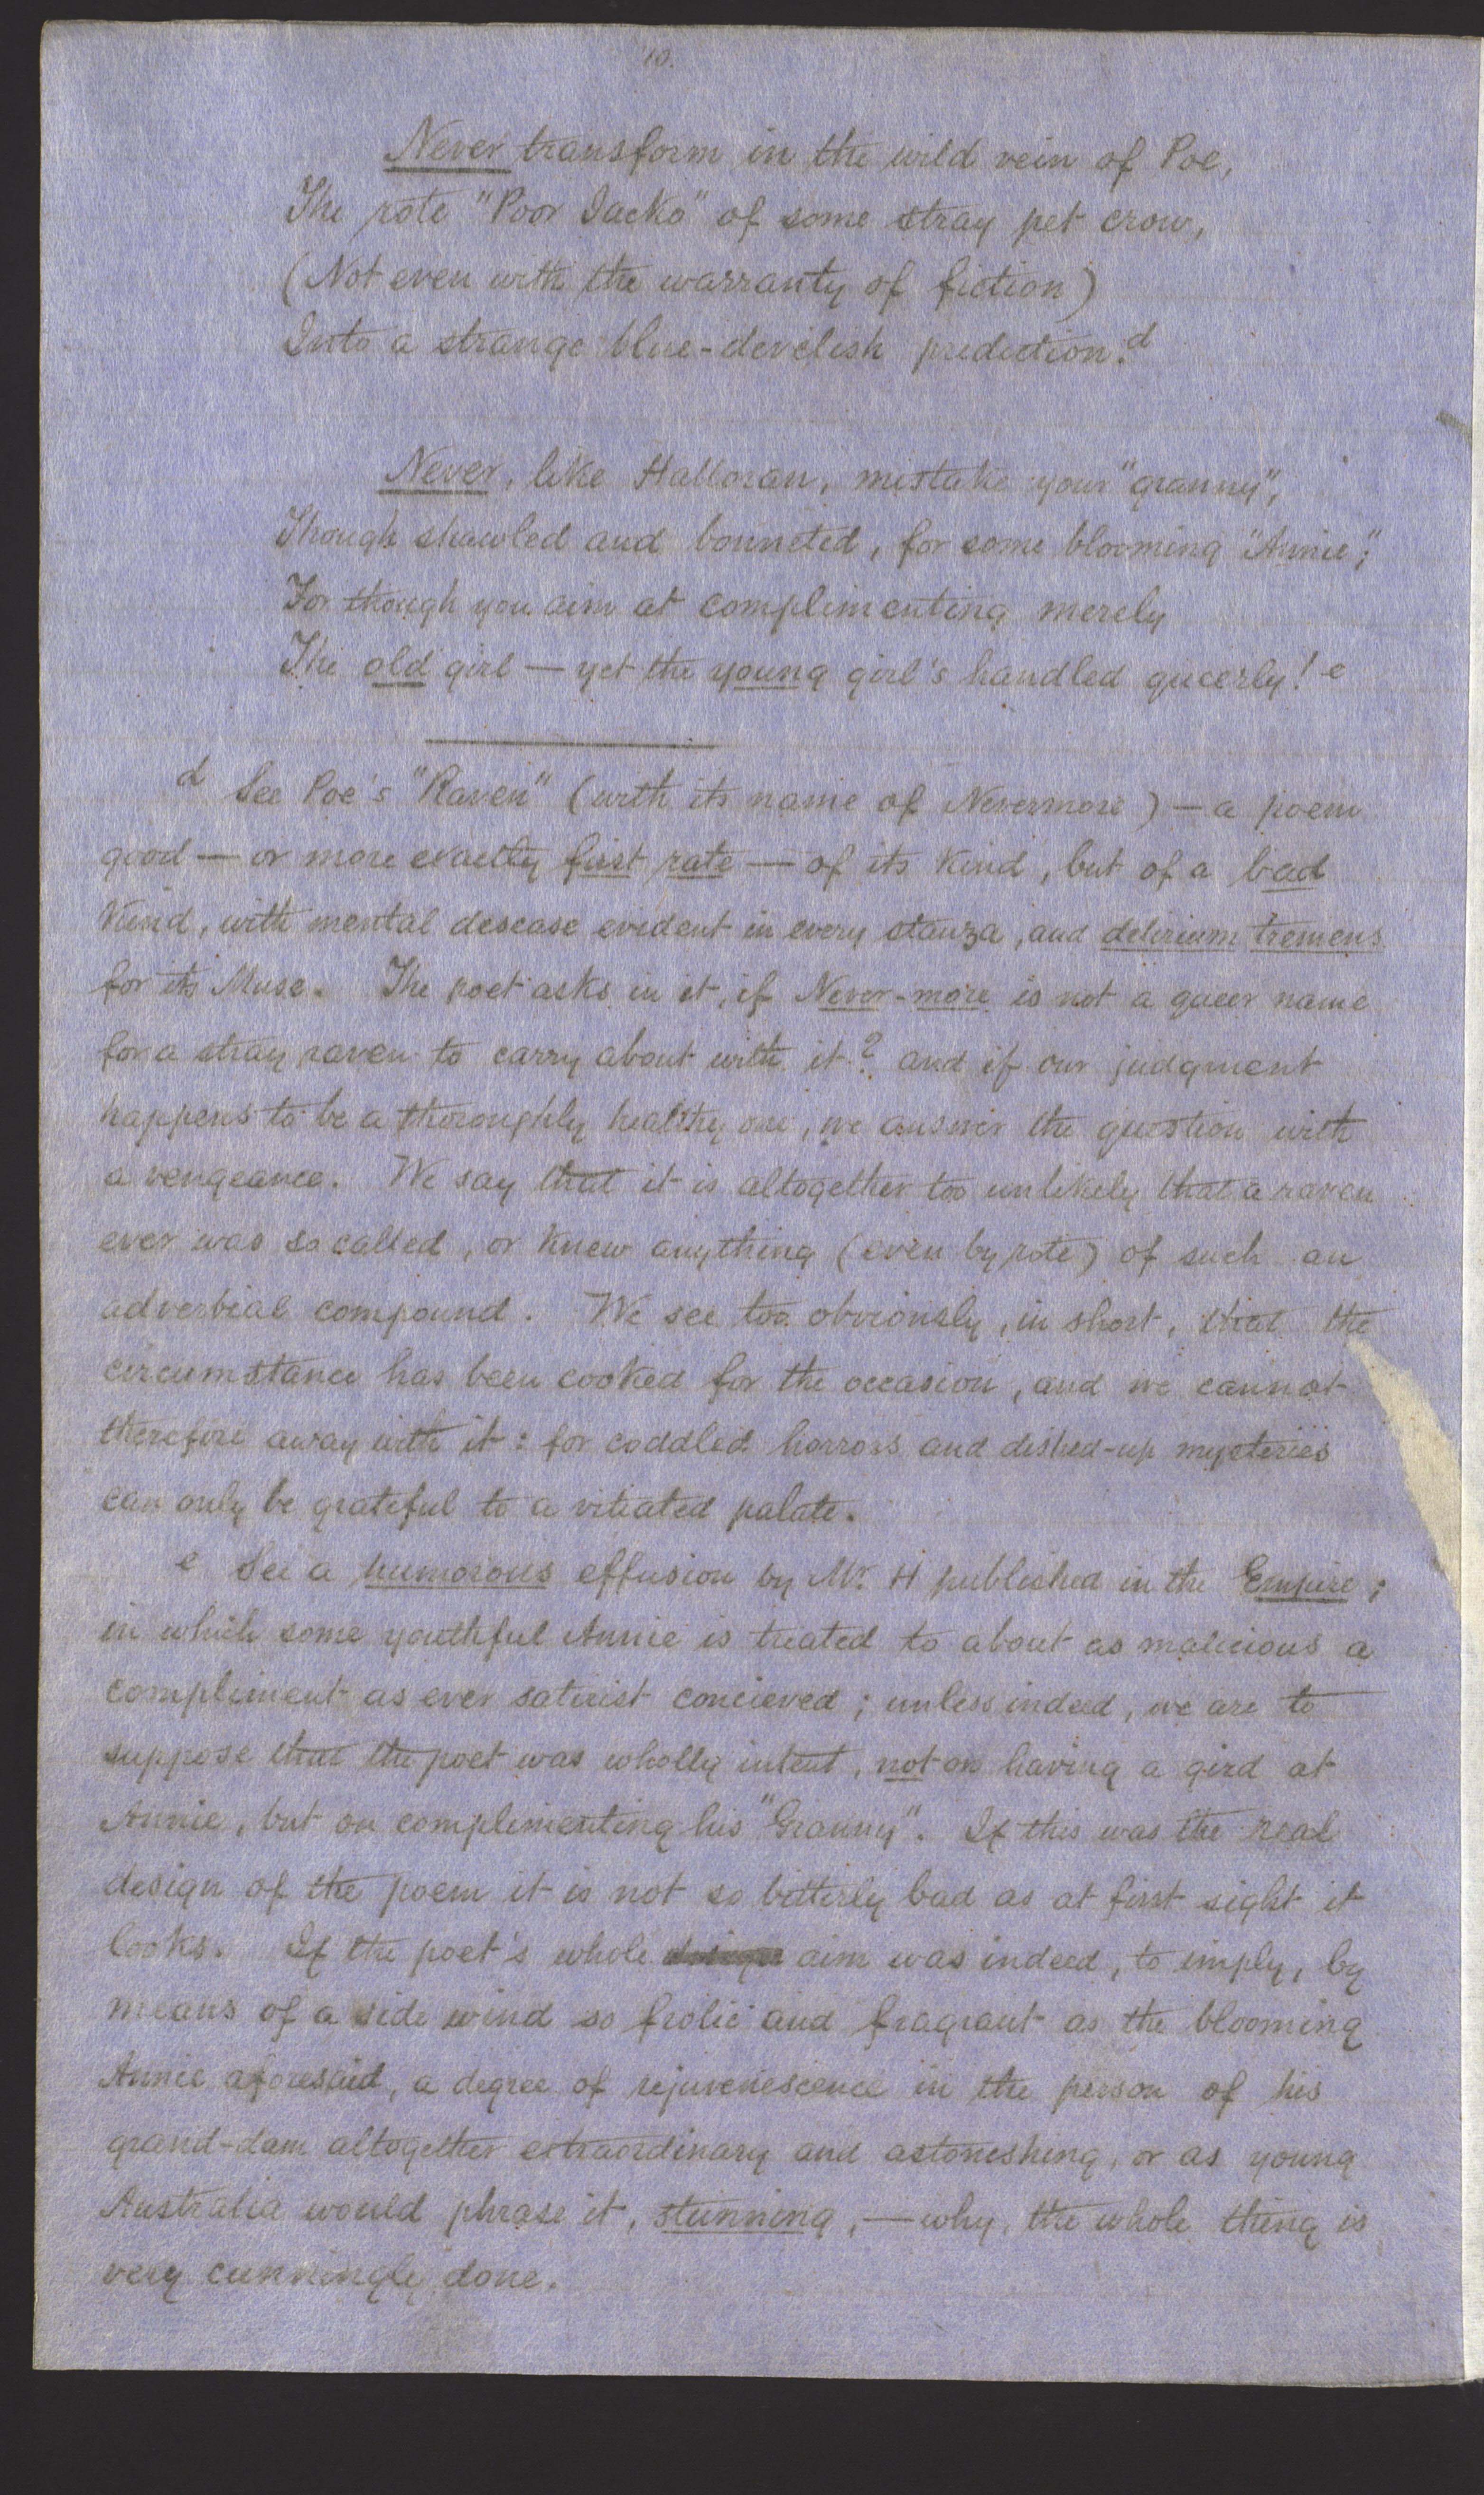 10.
Never transform in the wild vein of Poe,
The rote "Poor Jacko" of some stray pet crow,
(Not even with the warranty of fiction)
Into a strange blue-develish prediction.d
Never, like Halloran, mistake your "granny",
Though shawled and bonneted, for some blooming "Annie";
For though you aim at complimenting merely
The old girl — yet the young girl's handled queerly! e
d See Poe's "Raven" (with its name of Nevermore) — a poem
good — or more exactly first rate — of its kind, but of a bad
kind, with mental desease evident in every stanza, and delirium tremens
for its Muse. The poet asks in it, if Never-more is not a queer name
for a stray raven to carry about with it? and if our judgment
happens to be a thoroughly healthy one, we answer the question with
a vengeance. We say that it is altogether too unlikely that a raven
ever was so called, or knew anything (even by rote) of such an
adverbial compound. We see too obviously, in short, that the
circumstance has been cooked for the occasion, and we cannot
therefore away with it: for coddled horrors and dished-up mysteries
can only be grateful to a vitiated palate.
e See a humorous effusion by Mr. H published in the Empire;
in which some youthful Annie is treated to about as malicious a
compliment as ever satirist concieved; unless indeed, we are to
suppose that the poet was wholly intent, not on having a gird at
Annie, but on complimenting his "Granny". If this was the real
design of the poem it is not so bitterly bad as at first sight it
looks. If the poet's whole aim was indeed, to imply, by
means of a side wind so frolic and fragrant as the blooming
Annie aforesaid, a degree of rejuvenescence in the person of his
grand-dam altogether extraordinary and astonishing, or as young
Australia would phrase it, stunning, — why, the whole thing is
very cunningly done.